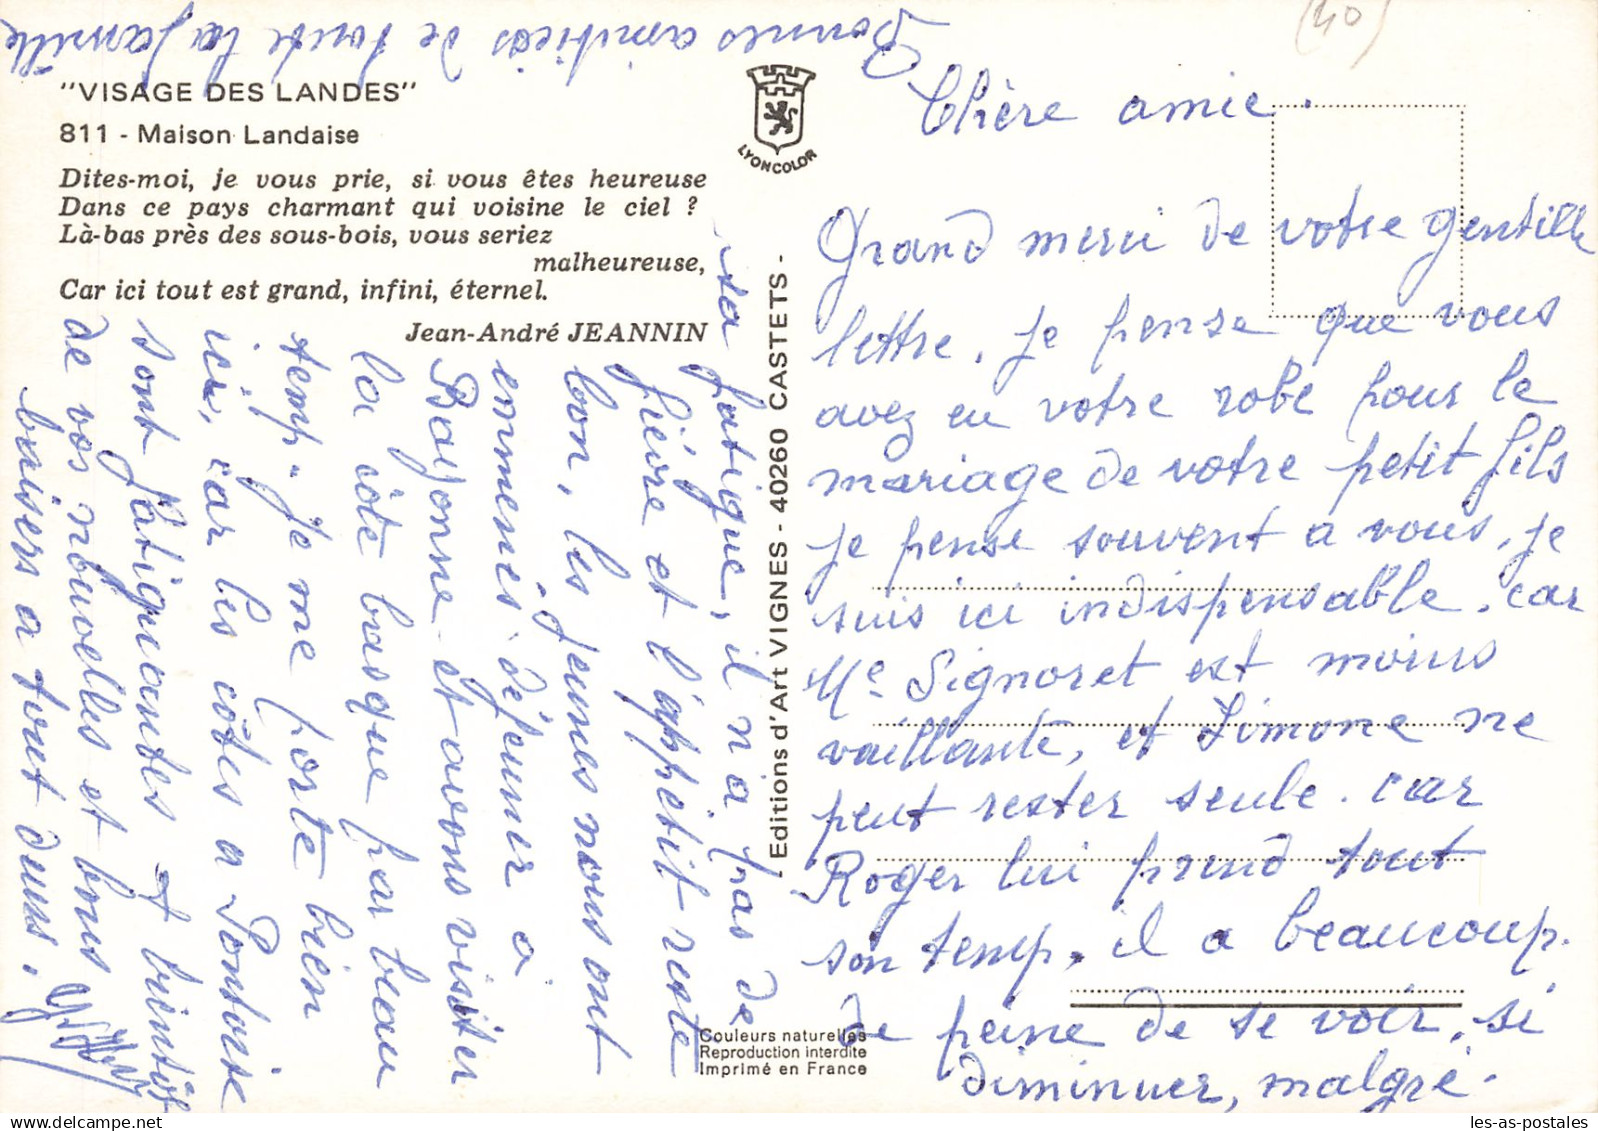 (40)
"VISAGE DES LANDES"
811 - Maison Landaise
Dites-moi, je vous prie, si vous êtes heureuse
Dans ce pays charmant qui voisine le ciel ?
Là-bas près des sous-bois, vous seriez
malheureuse,
Car ici tout est grand, infini, éternel.
Jean-André JEANNIN
LYONCOLOR
- Editions d'Art VIGNES - 40260 CASTETS -
Couleurs naturelles
Reproduction interdite
Imprimé en France
Chère amie.
Grand merci de votre gentille
lettre, je pense que vous
avez eu votre robe pour le
mariage de votre petit fils
je pense souvent a vous, je
suis ici indispensable. car
Me Signoret est moins
vaillante, et Simone ne
peut rester seule. car
Roger lui prend tout
son temp, il a beaucoup
de peine de se voir, si
diminuer, malgré
sa fatigue, il n'a pas de
fièvre et l'appetit reste
bon, les jeunes nous ont
emmenés déjeuner a
Bayonne et avons visiter
la côte basque par beau
temp. je me porte bien
ici, car les côtes a Pontoise
sont fatiguantes et bientôt
de vos nouvelles et bons
baisers a tout deux.
Bonnes amitiées de toute la famille
les-as-postales